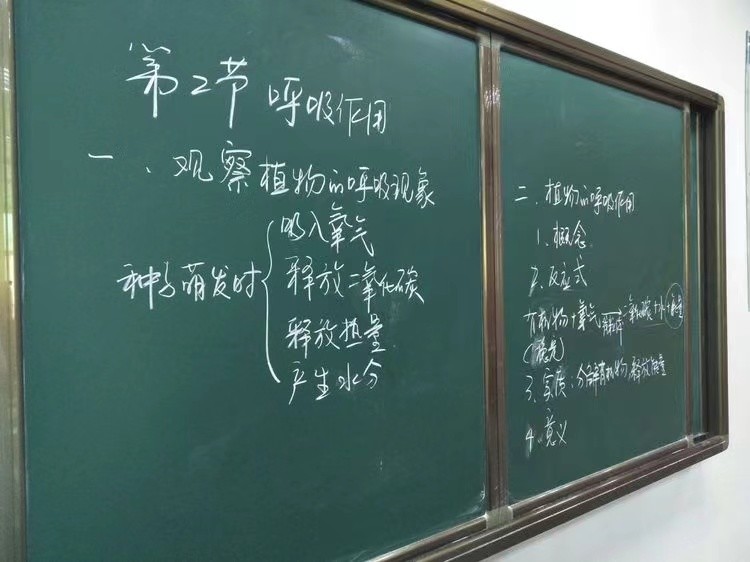 第2节 呼吸作用
一、观察植物的呼吸现象
种子萌发时
吸入氧气
释放二氧化碳
释放热量
产生水分
二、植物的呼吸作用
1、概念
2、反应式
有机物+氧气 线粒体 二氧化碳+水+能量
3、实质:分解有机物,释放能量
4、意义